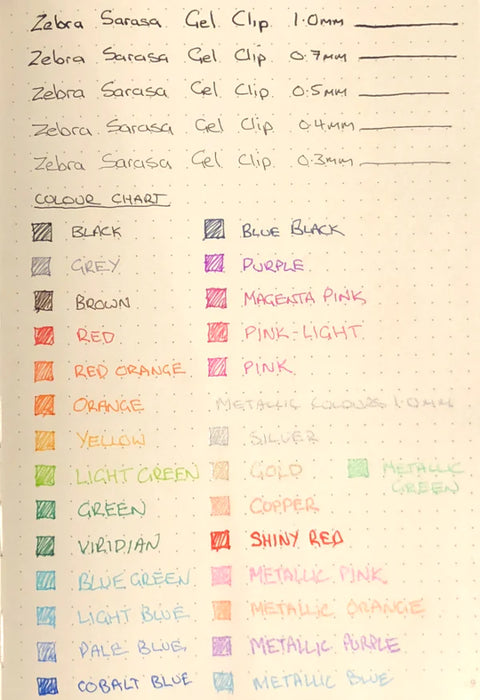 Zebra Sarasa Gel Clip 1.0mm
Zebra Sarasa Gel Clip 0.7mm
Zebra Sarasa Gel Clip 0.5mm
Zebra Sarasa Gel Clip 0.4mm
Zebra Sarasa Gel Clip 0.3mm
COLOUR CHART
BLACK
GREY
BROWN
RED
RED ORANGE
ORANGE
YELLOW
LIGHT GREEN
GREEN
VIRIDIAN
BLUE GREEN
LIGHT BLUE
PALE BLUE
COBALT BLUE
BLUE BLACK
PURPLE
MAGENTA PINK
PINK-LIGHT
PINK
METALLIC COLOURS 1.0mm
SILVER
GOLD
COPPER
SHINY RED
METALLIC PINK
METALLIC ORANGE
METALLIC PURPLE
METALLIC BLUE
METALLIC
GREEN
9